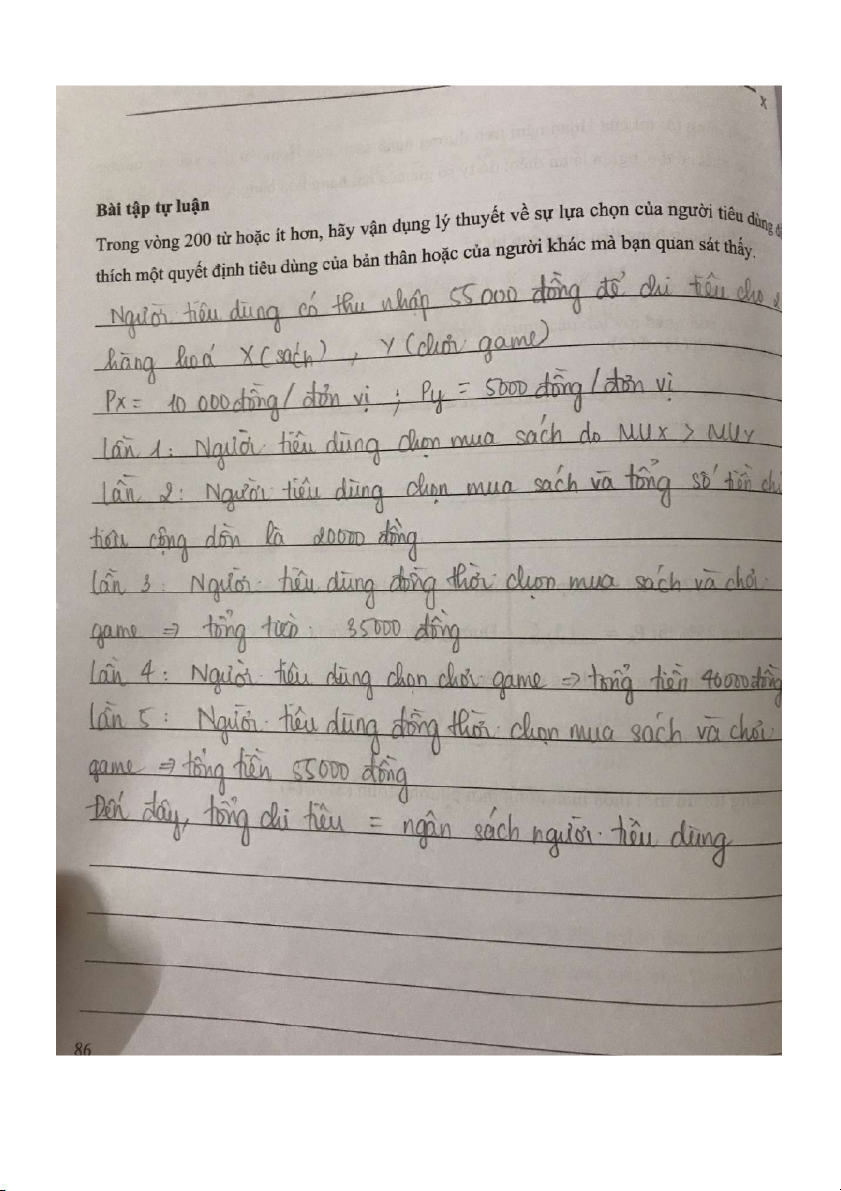 x
Bài tập tự luận
Trong vòng 200 từ hoặc ít hơn, hãy vận dụng lý thuyết về sự lựa chọn của người tiêu dùng
thích một quyết định tiêu dùng của bản thân hoặc của người khác mà bạn quan sát thấy.
Người tiêu dùng có thu nhập 55000 đồng để chi tiêu cho 2
hàng hoá X (sách), Y (chơi game)
Px = 10 000 đồng / đơn vị ; Py = 5000 đồng / đơn vị
Lần 1: Người tiêu dùng chọn mua sách do MUx > MUY
Lần 2: Người tiêu dùng chọn mua sách và tổng số tiền chi
tiêu cộng dồn là 20000 đồng
Lần 3: Người tiêu dùng đồng thời chọn mua sách và chơi
game => tổng tiền: 35000 đồng
Lần 4: Người tiêu dùng chọn chơi game => tổng tiền 40000 đồng
Lần 5: Người tiêu dùng đồng thời chọn mua sách và chơi
game => tổng tiền 55000 đồng
Đến đây, tổng chi tiêu = ngân sách người tiêu dùng
86